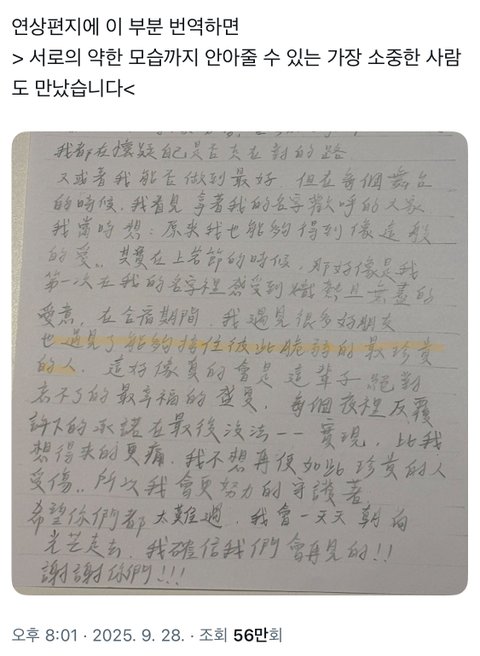 연상편지에 이 부분 번역하면
> 서로의 약한 모습까지 안아줄 수 있는 가장 소중한 사람
도 만났습니다<
我都在懷疑自己是否走在對的路
又或者我能否做到最好. 但在每個舞台
的時候, 我看見拿著我的名字歡呼的大家
我當時想: 原來我也能夠得到像這般
的愛.. 其實在上節節的時候, 那好像是我
第一次在我的名字裡感受到熾熱且無盡的
愛意. 在合宿期間, 我遇見很多好朋友
也遇見了能夠接住彼此脆弱的最珍貴
的人. 這好像真的會是這輩子絕對
忘不了的最幸福的盛夏. 每個夜裡反覆
許下的承諾在最後沒法一一實現, 比我
想得來的更痛. 我不想再使如此珍貴的人
受傷.. 所以我會更努力的守護著.
希望你們都 太難過. 我會一天天朝向
光芒走去. 我確信我們會再見的!!
謝謝你們!!!
오후 8:01 · 2025. 9. 28. · 조회 56만회